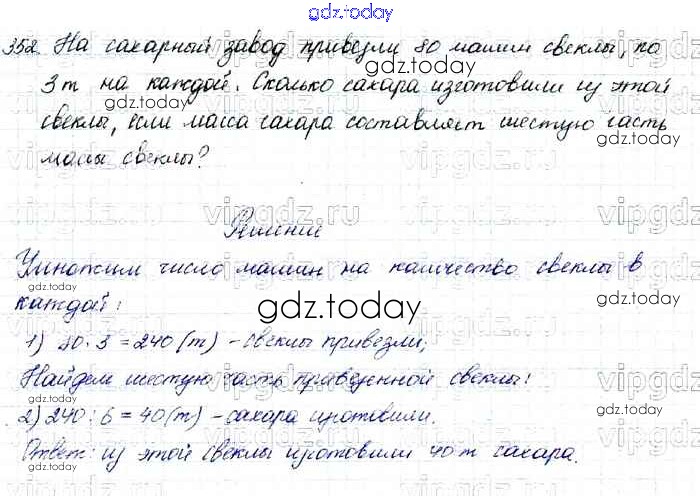 gdz.today
352. На сахарный завод привезли 80 машин свеклы, по
gdz.today
3т на каждой. Сколько сахара изготовили из этой
gdz.today
свеклы, если масса сахара составляет шестую часть
gdz.today
массы свеклы?
vipgdz.ru vipgdz.ru
Решение
Умножим число машин на количество свеклы в
каждой:
gdz.today
1) 80·3=240(т) – свеклы привезли;
Найдем шестую часть привезенной свеклы:
gdz.today
2) 240:6=40(т) – сахара изготовили.
gdz.today
Ответ: из этой свеклы изготовили 40т сахара.